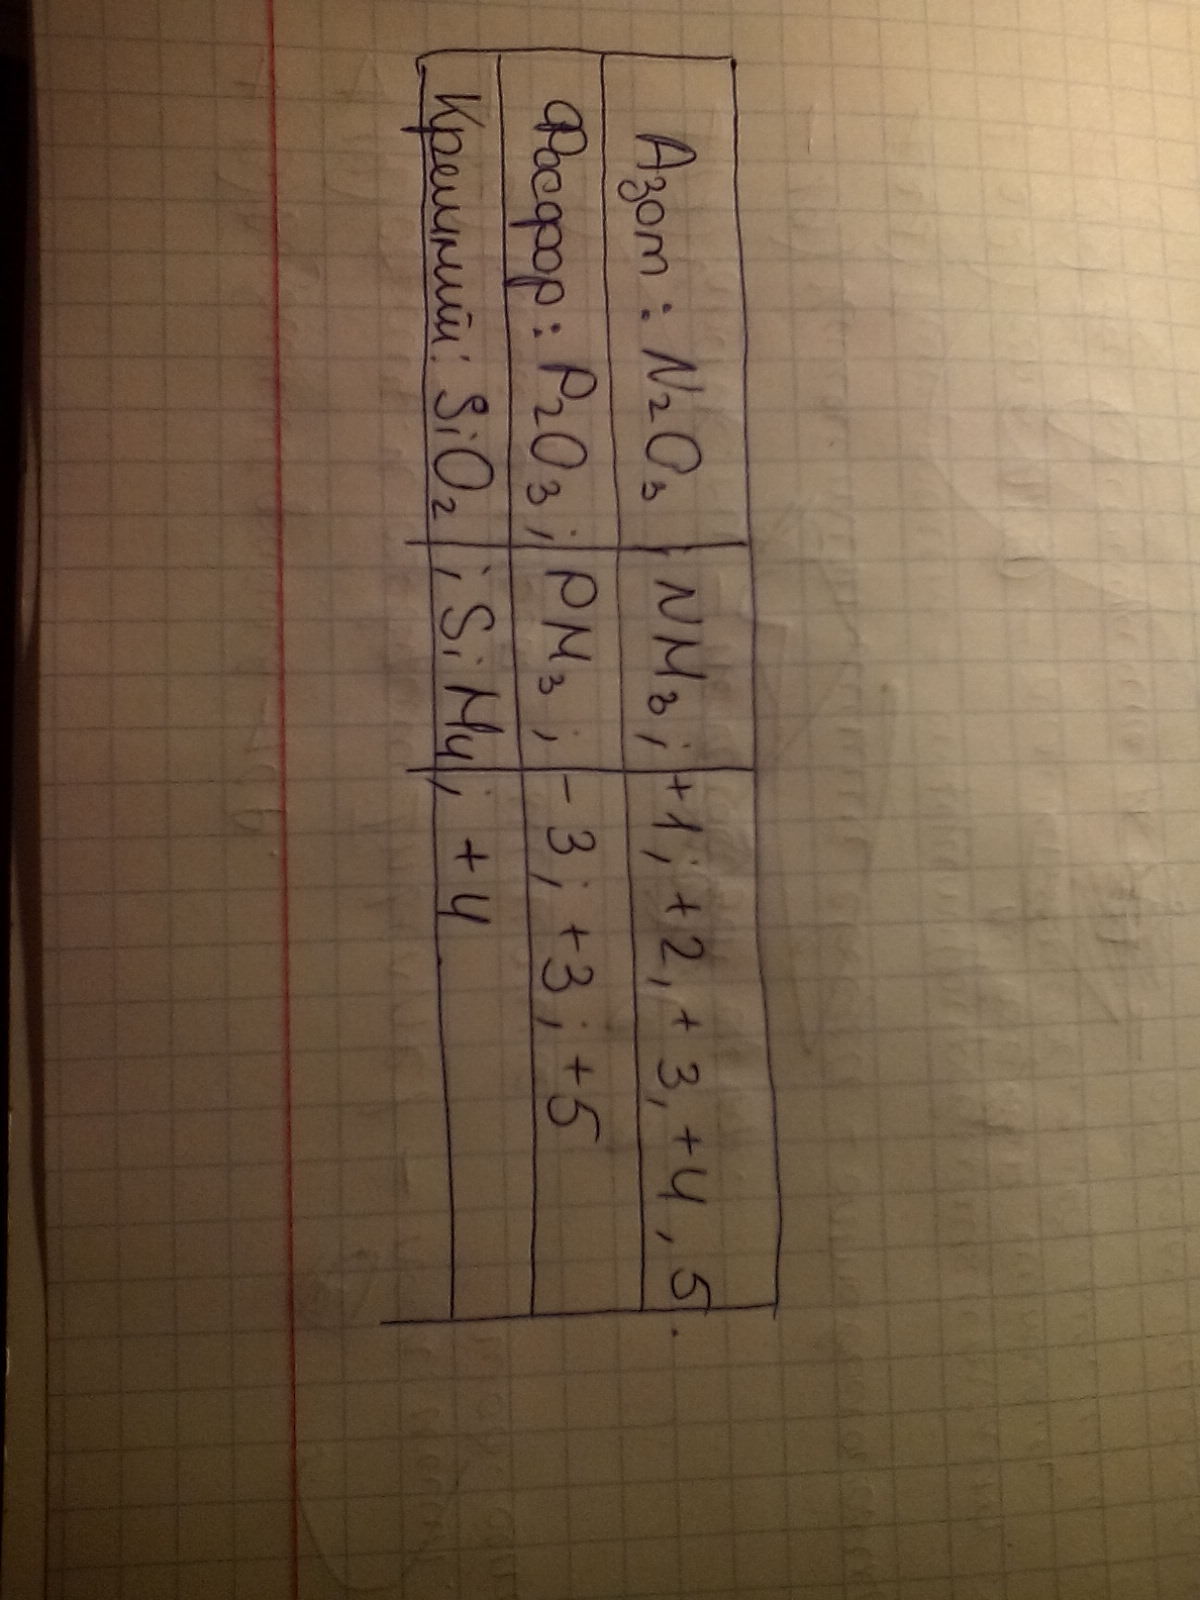 Азот: N₂O₃; NH₃; +1; +2, +3, +4, 5.
Фосфор: P₂O₃; PH₃; -3; +3; +5
Кремний: SiO₂; SiH₄; +4